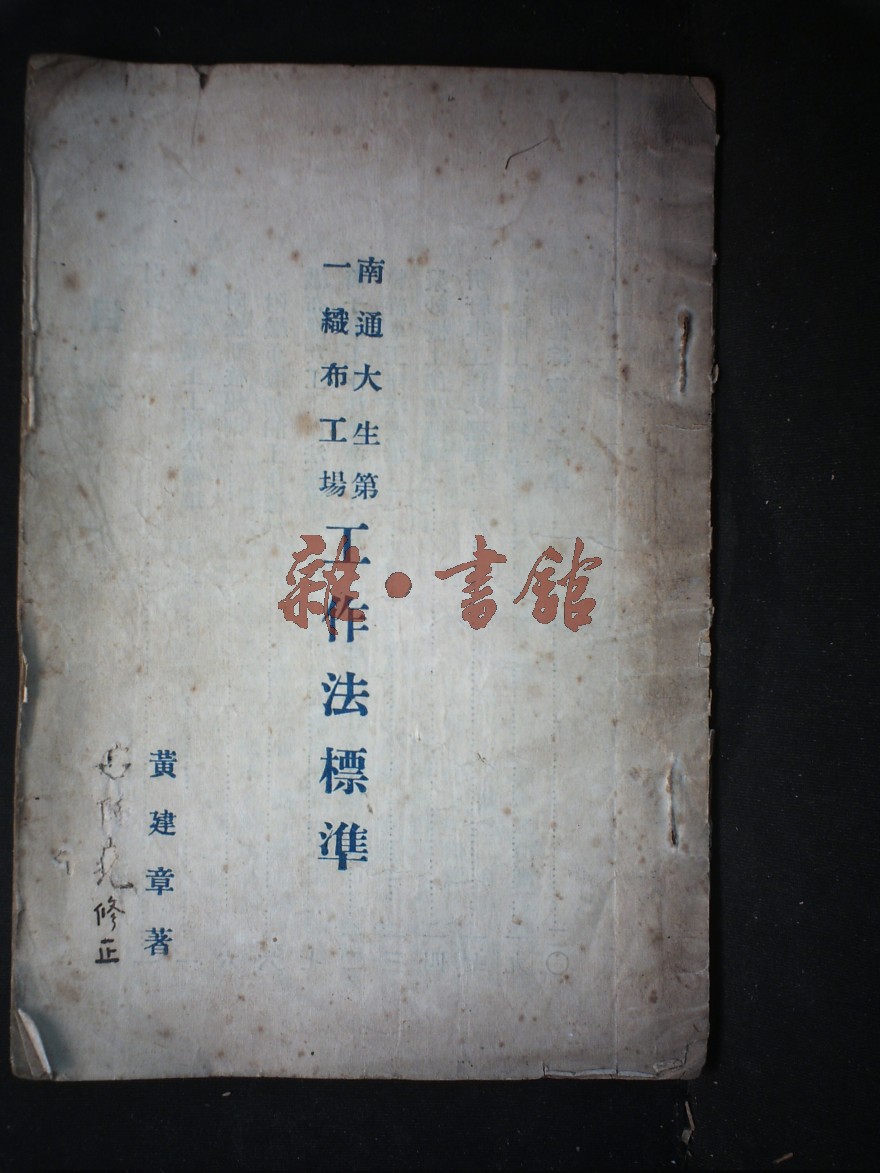 南通大生第
一織布工場
工作法標準
黃建章著
修正
雜·書館